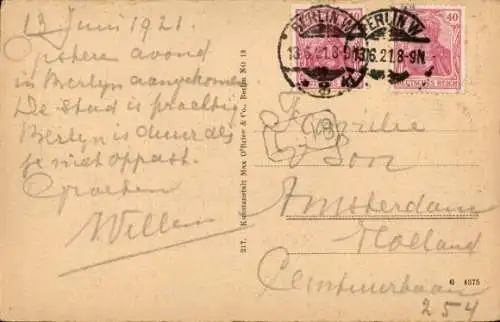 13 Juni 1921.
Gisteren avond
in Berlyn aangekomen
De stad is prachtig
Berlyn is duur als
je niet oppast.
Groeten
Willem
217. Kunstanstalt Max O'Brien & Co., Berlin NO 18
BERLIN W
13.6.21.8-9N
BERLIN W
13.6.21.8-9N
40
DEUTSCHES REICH
Familie
Amsterdam
Holland
Ceintuurbaan
254
G 4575